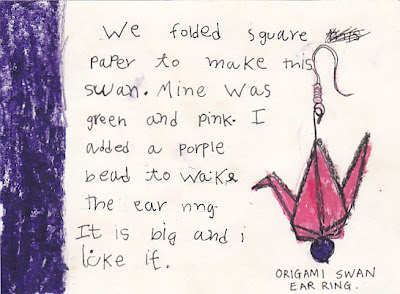 We folded sguare
paper to make this
swan. Mine was
green and pink. I
added a porple
bead to wake
the ear rng.
It is big and i
like it.
ORIGAMI SWAN
EAR RING.